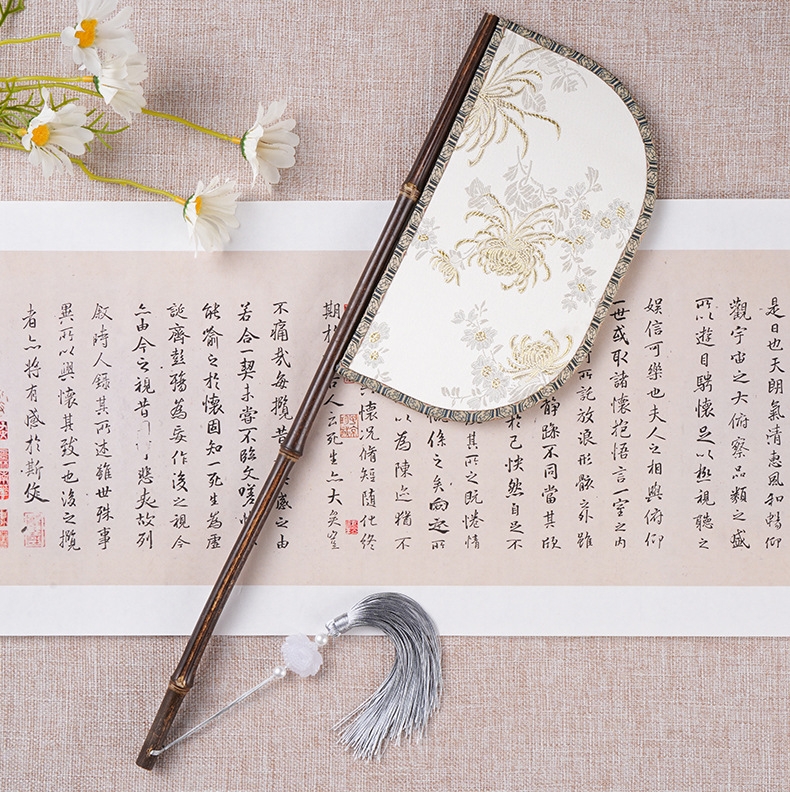 是日也天朗氣清惠風和暢仰
觀宇宙之大俯察品類之盛
所以遊目騁懷足以極視聽之
娛信可樂也夫人之相與俯仰
一世或取諸懷抱悟言一室之內
所託放浪形骸之外雖
靜躁不同當其欣
於己怏然自足不
其所之既惓情
慨係之矣向之所
以為陳迹猶不
懷況脩短隨化終
期於人云死生亦大矣豈
不痛哉每攬昔感之由
若合一契未嘗不臨文嗟
能喻之於懷固知一死生為虛
誕齊彭殤為妄作後之視今
亦由今之視昔悲夫故列
敘時人錄其所述雖世殊事
異所以興懷其致一也後之攬
者亦將有感於斯文